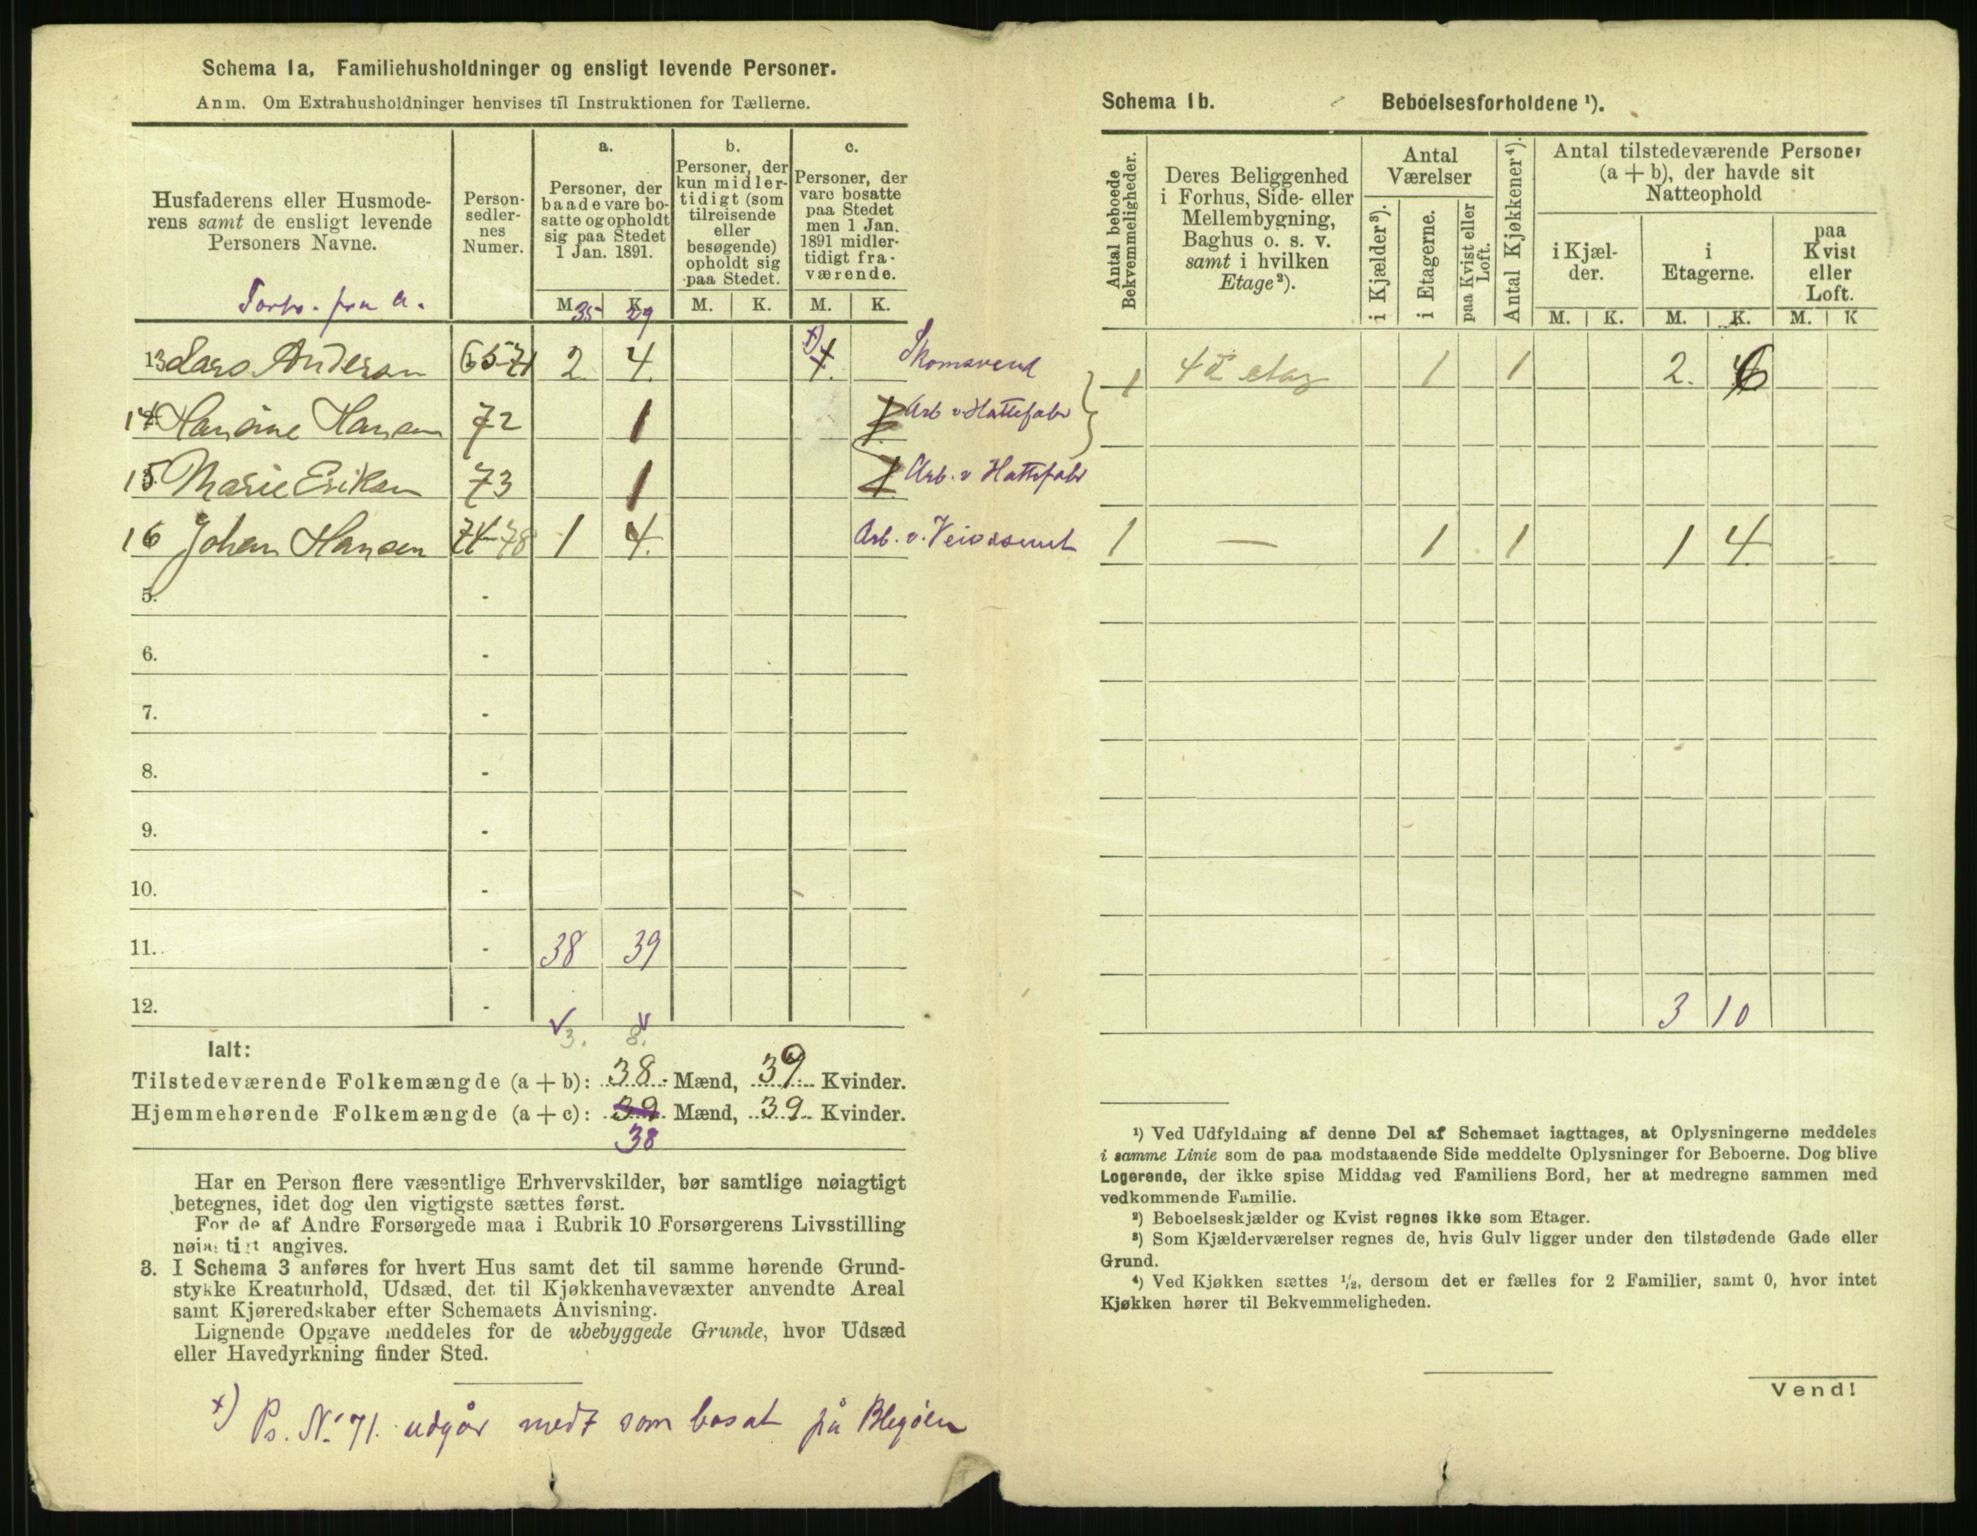 Schema 1a, Familiehusholdninger og ensligt levende Personer.
Anm. Om Extrahusholdninger henvises til Instruktionen for Tællerne.
Husfaderens eller Husmoderens samt de ensligt levende Personers Navne.
Personsedlernes Numer.
a.
Personer, der baade vare bosatte og opholdt sig paa Stedet 1 Jan. 1891.
b.
Personer, der kun midlertidigt (som tilreisende eller besøgende) opholdt sig paa Stedet.
c.
Personer, der vare bosatte paa Stedet men 1 Jan. 1891 midlertidigt fraværende.
M. K. M. K. M. K.
fra a. 35 29
13 Lars Andersen 65-71 2 4. x) 1. Skomsvend
14 Hansine Hansen 72 1 1 Arb v Hattefabr
15 Marie Eriksen 73 1 1 Arb. v Hattefabr
16 Johan Hansen 74-78 1 4. Arb. v. Veivæsenet
5. -
6. -
7. -
8. -
9. -
10. -
11. - 38 39
12. -
3. 8.
Ialt:
Tilstedeværende Folkemængde (a + b): 38 Mænd, 39 Kvinder.
Hjemmehørende Folkemængde (a + c): 39 Mænd, 39 Kvinder.
38
Har en Person flere væsentlige Erhvervskilder, bør samtlige nøiagtigt
betegnes, idet dog den vigtigste sættes først.
For de af Andre Forsørgede maa i Rubrik 10 Forsørgerens Livsstilling
nøiagtigt angives.
3. I Schema 3 anføres for hvert Hus samt det til samme hørende Grund-
stykke Kreaturhold, Udsæd, det til Kjøkkenhavevæxter anvendte Areal
samt Kjøreredskaber efter Schemaets Anvisning.
Lignende Opgave meddeles for de ubebyggede Grunde, hvor Udsæd
eller Havedyrkning finder Sted.
x) Ps. No. 71. udgår medt som bosat på Blegøen
Schema 1b. Beboelsesforholdene ¹).
Antal beboede Bekvemmeligheder.
Deres Beliggenhed i Forhus, Side- eller Mellembygning, Baghus o. s. v. samt i hvilken Etage ²).
Antal Værelser
i Kjælder ³).
i Etagerne.
paa Kvist eller Loft.
Antal Kjøkkener ⁴).
Antal tilstedeværende Personer (a + b), der havde sit Natteophold
i Kjælder.
i Etagerne.
paa Kvist eller Loft.
M. K. M. K. M. K
1 4d etag 1 1 2. 6
1 — 1 1 1 4
3 10
¹) Ved Udfyldning af denne Del af Schemaet iagttages, at Oplysningerne meddeles
i samme Linie som de paa modstaaende Side meddelte Oplysninger for Beboerne. Dog blive
Logerende, der ikke spise Middag ved Familiens Bord, her at medregne sammen med
vedkommende Familie.
²) Beboelseskjælder og Kvist regnes ikke som Etager.
³) Som Kjælderværelser regnes de, hvis Gulv ligger under den tilstødende Gade eller
Grund.
⁴) Ved Kjøkken sættes ½, dersom det er fælles for 2 Familier, samt 0, hvor intet
Kjøkken hører til Bekvemmeligheden.
Vend!